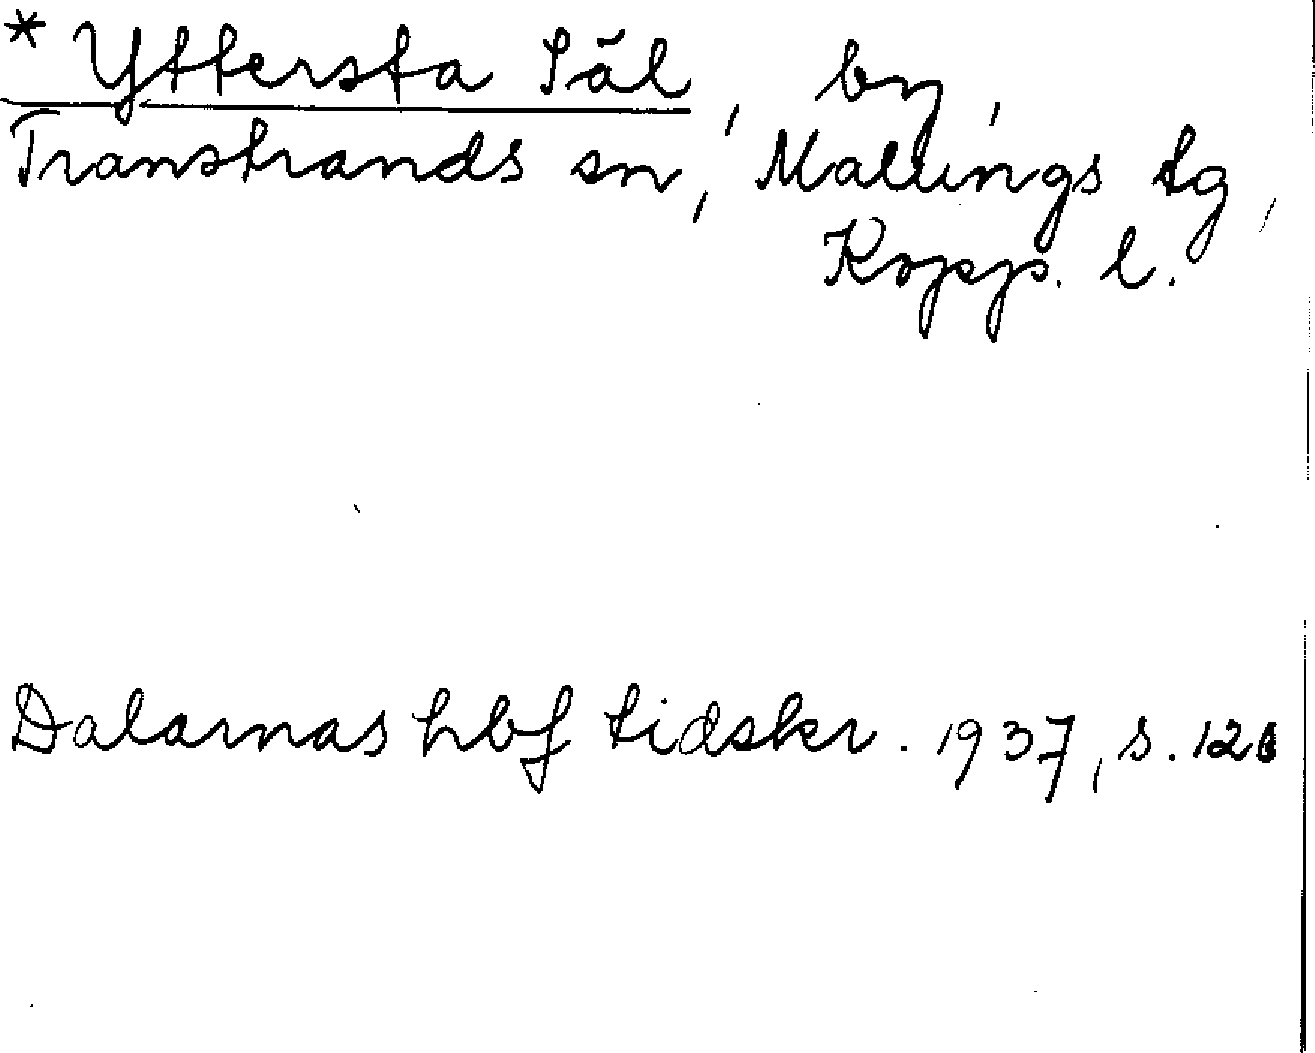 * Yttersta Säl, by,
Transtrands sn, Malungs tg,
Kopp. l.
Dalarnas hbf tidskr. 1937, s.